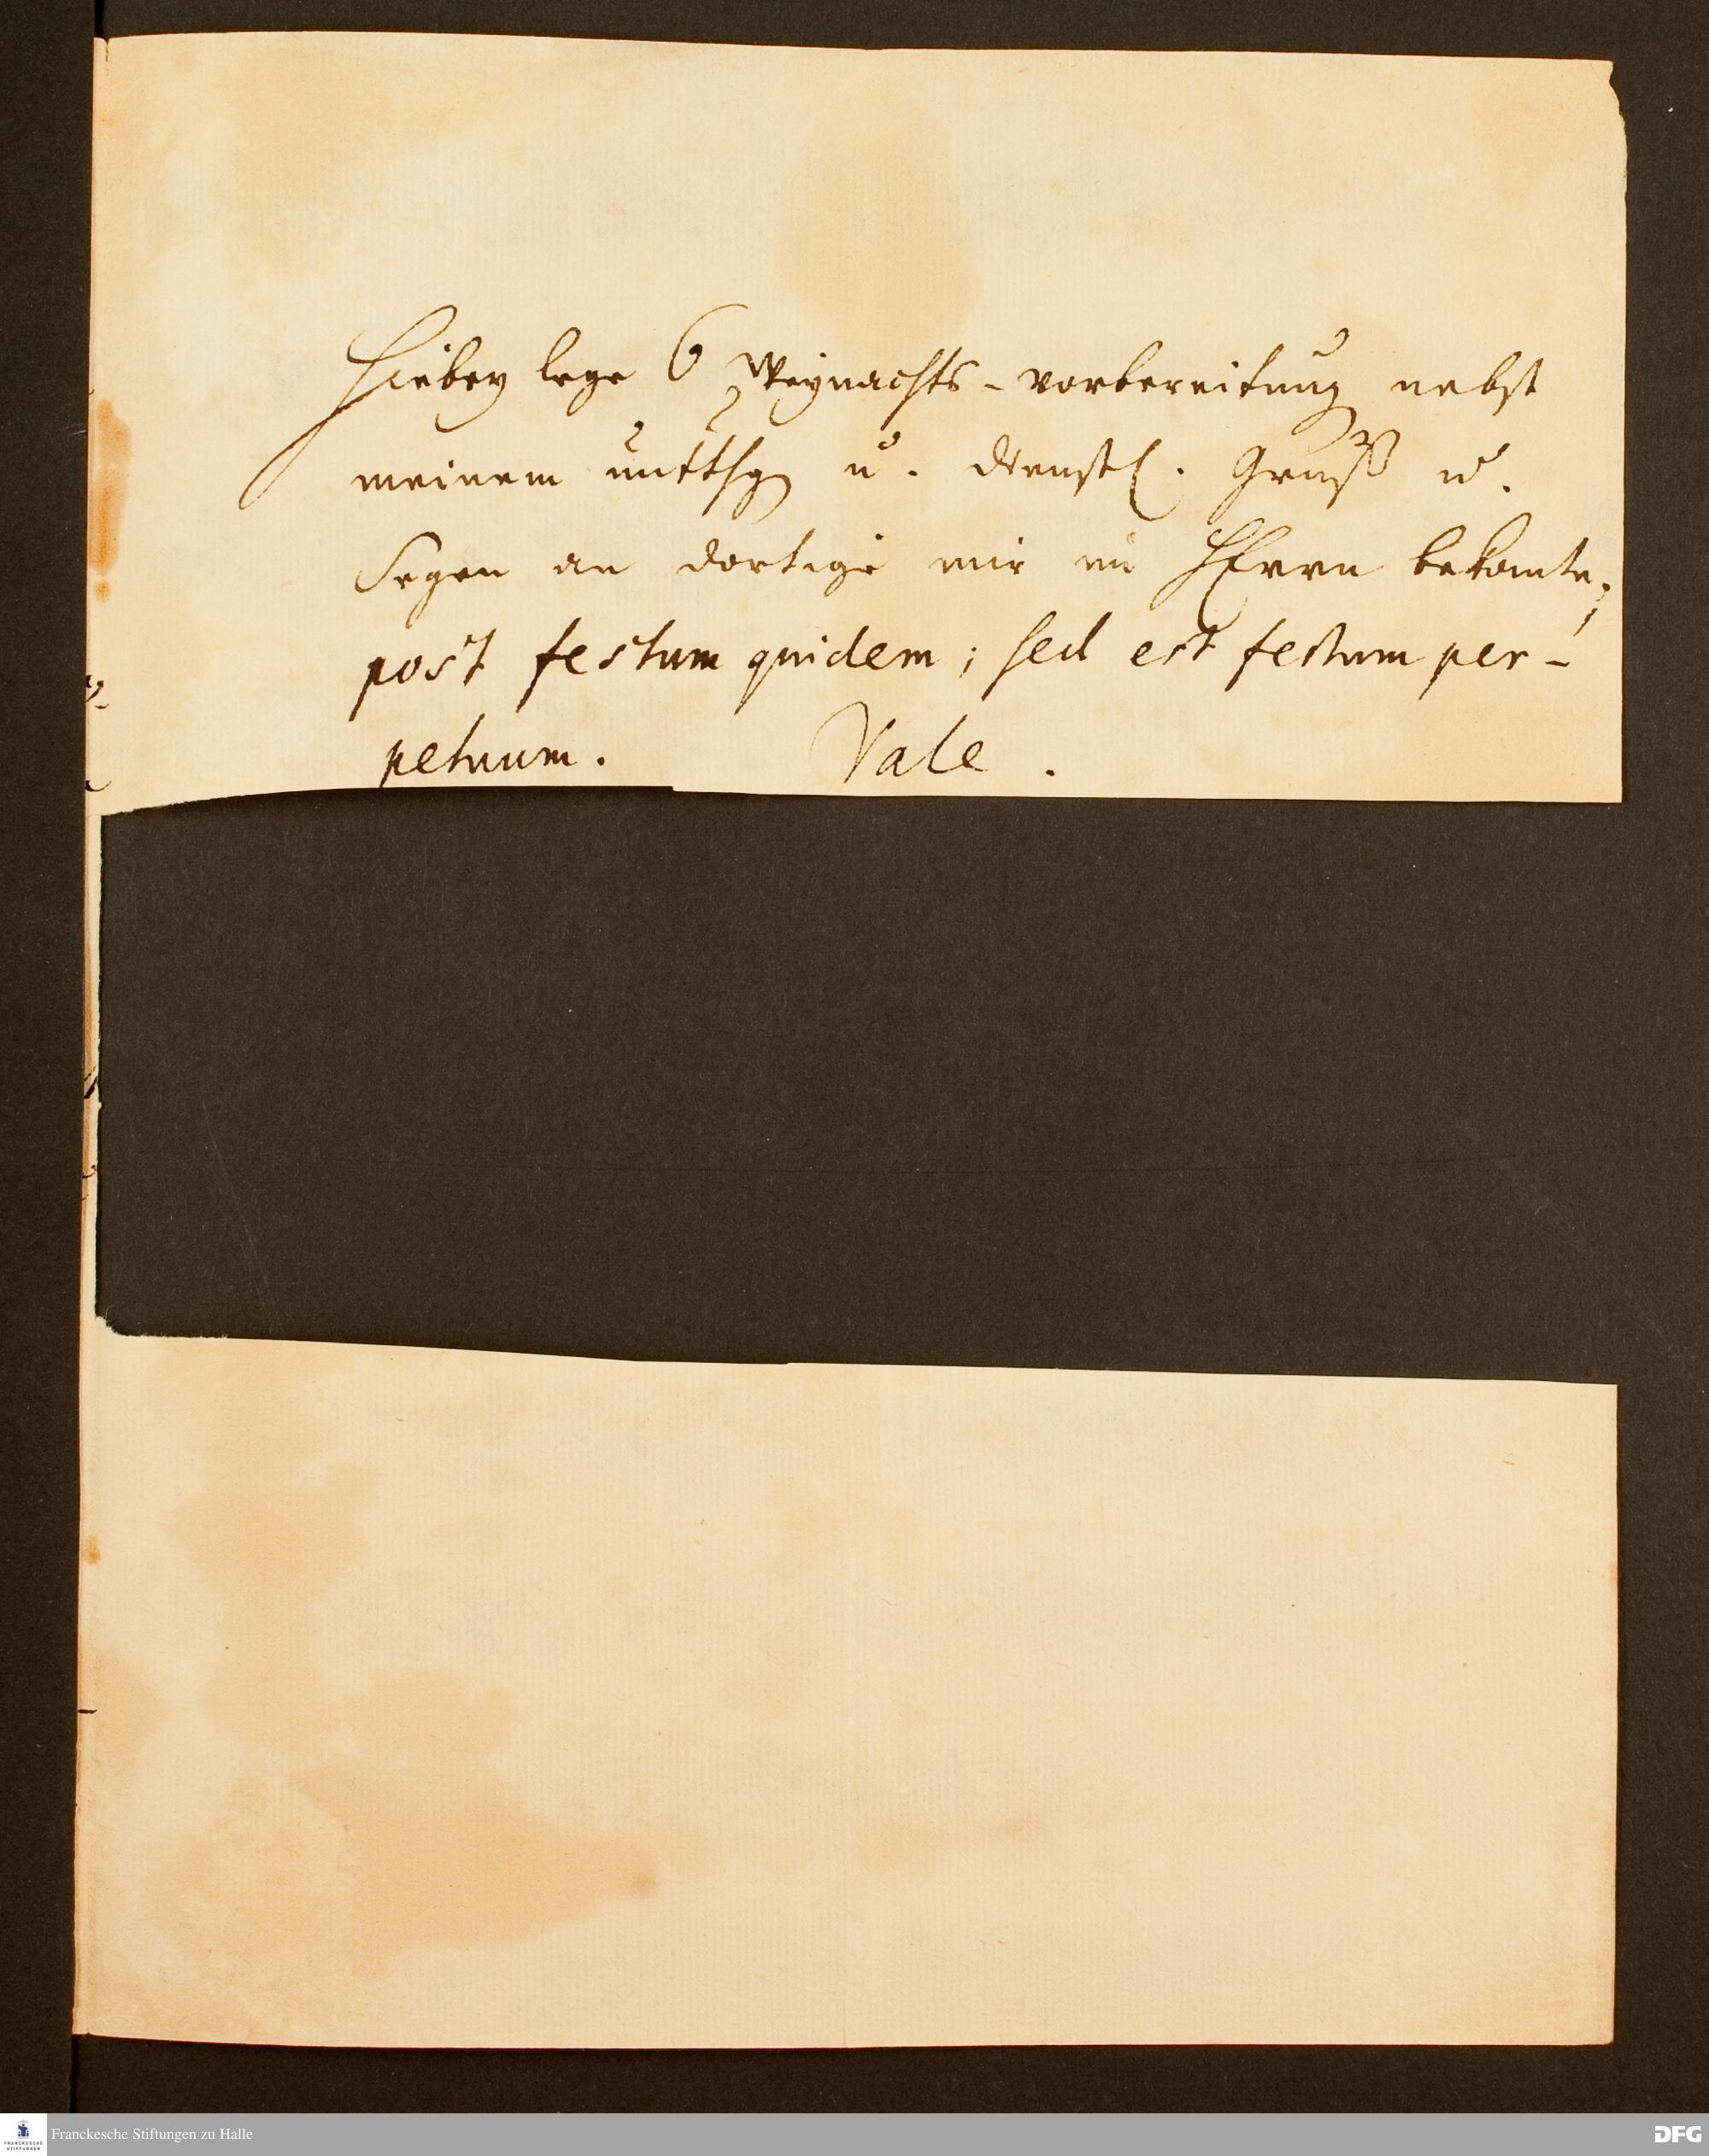 Hiebey lege 6 Weynachts-vorbereitung nebst
meinem u. dienstl. Gruß u.
Segen an dortige mir im HErrn bekante,
post festum quidem; sed est festum per-
petuum. Vale.
Franckesche Stiftungen zu Halle
FRANCKESCHE
STIFTUNGEN
DFG